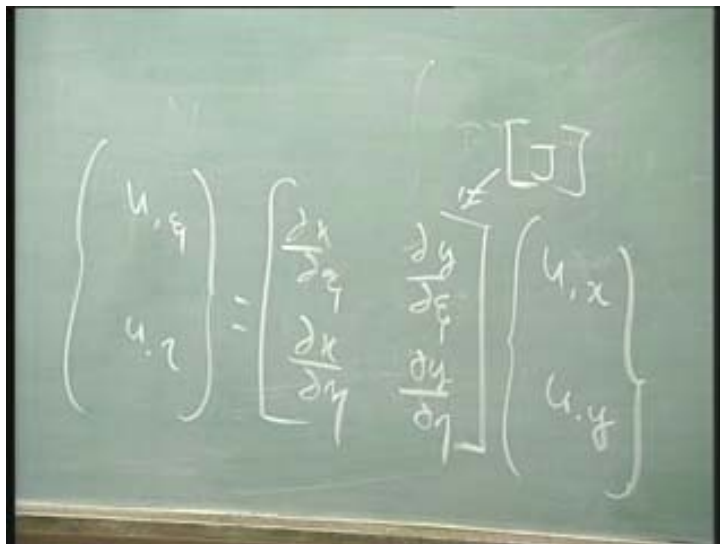 [J]
{u,ξ u,η} = [∂x/∂ξ ∂y/∂ξ ∂x/∂η ∂y/∂η] {u,x u,y}